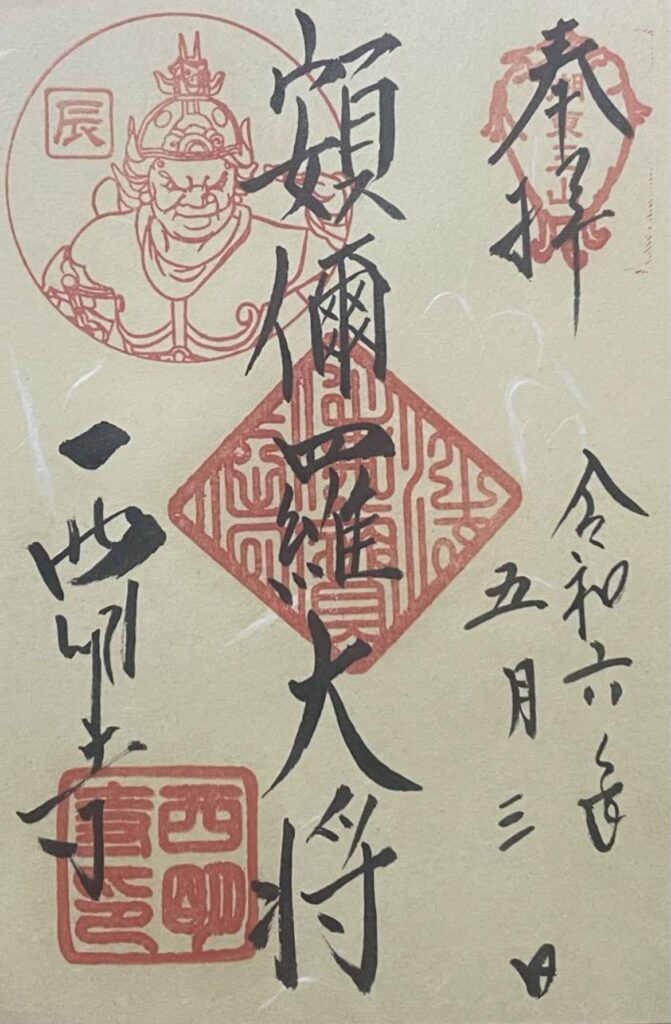 奉拝
湖東三山
令和六年
五月三日
頞儞羅大将
辰
西明寺
西明
寺印